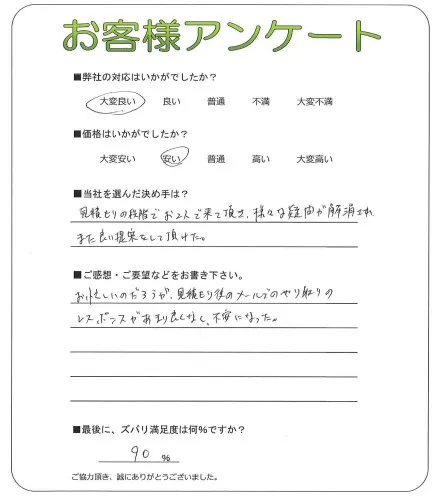 お客様アンケート
■弊社の対応はいかがでしたか？
大変良い 良い 普通 不満 大変不満
■価格はいかがでしたか？
大変安い 安い 普通 高い 大変高い
■当社を選んだ決め手は？
見積もりの段階でお2人で来て頂き、様々な疑問が解消され
また良い提案をして頂けた。
■ご感想・ご要望などをお書き下さい。
お忙しいのだろうが、見積もり後のメールでのやり取りの
レスポンスがあまり良くなく、不安になった。
■最後に、ズバリ満足度は何％ですか？
90 ％
ご協力頂き、誠にありがとうございました。